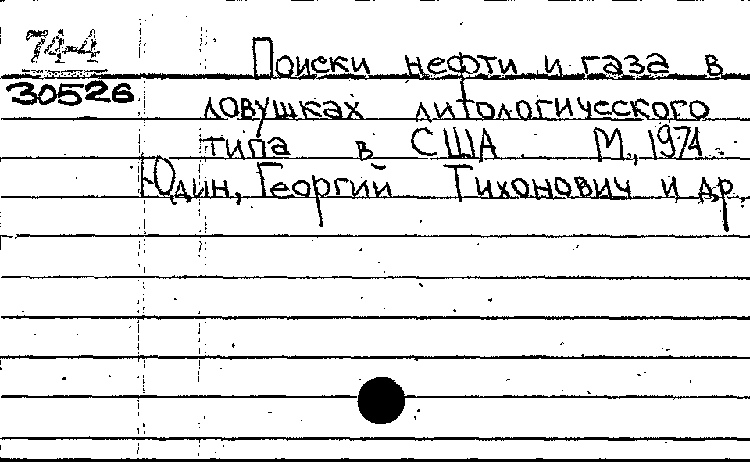 74-4
30526
Поиски нефти и газа в
ловушках литологического
типа в США М., 1974.
Юдин, Георгий Тихонович и др.